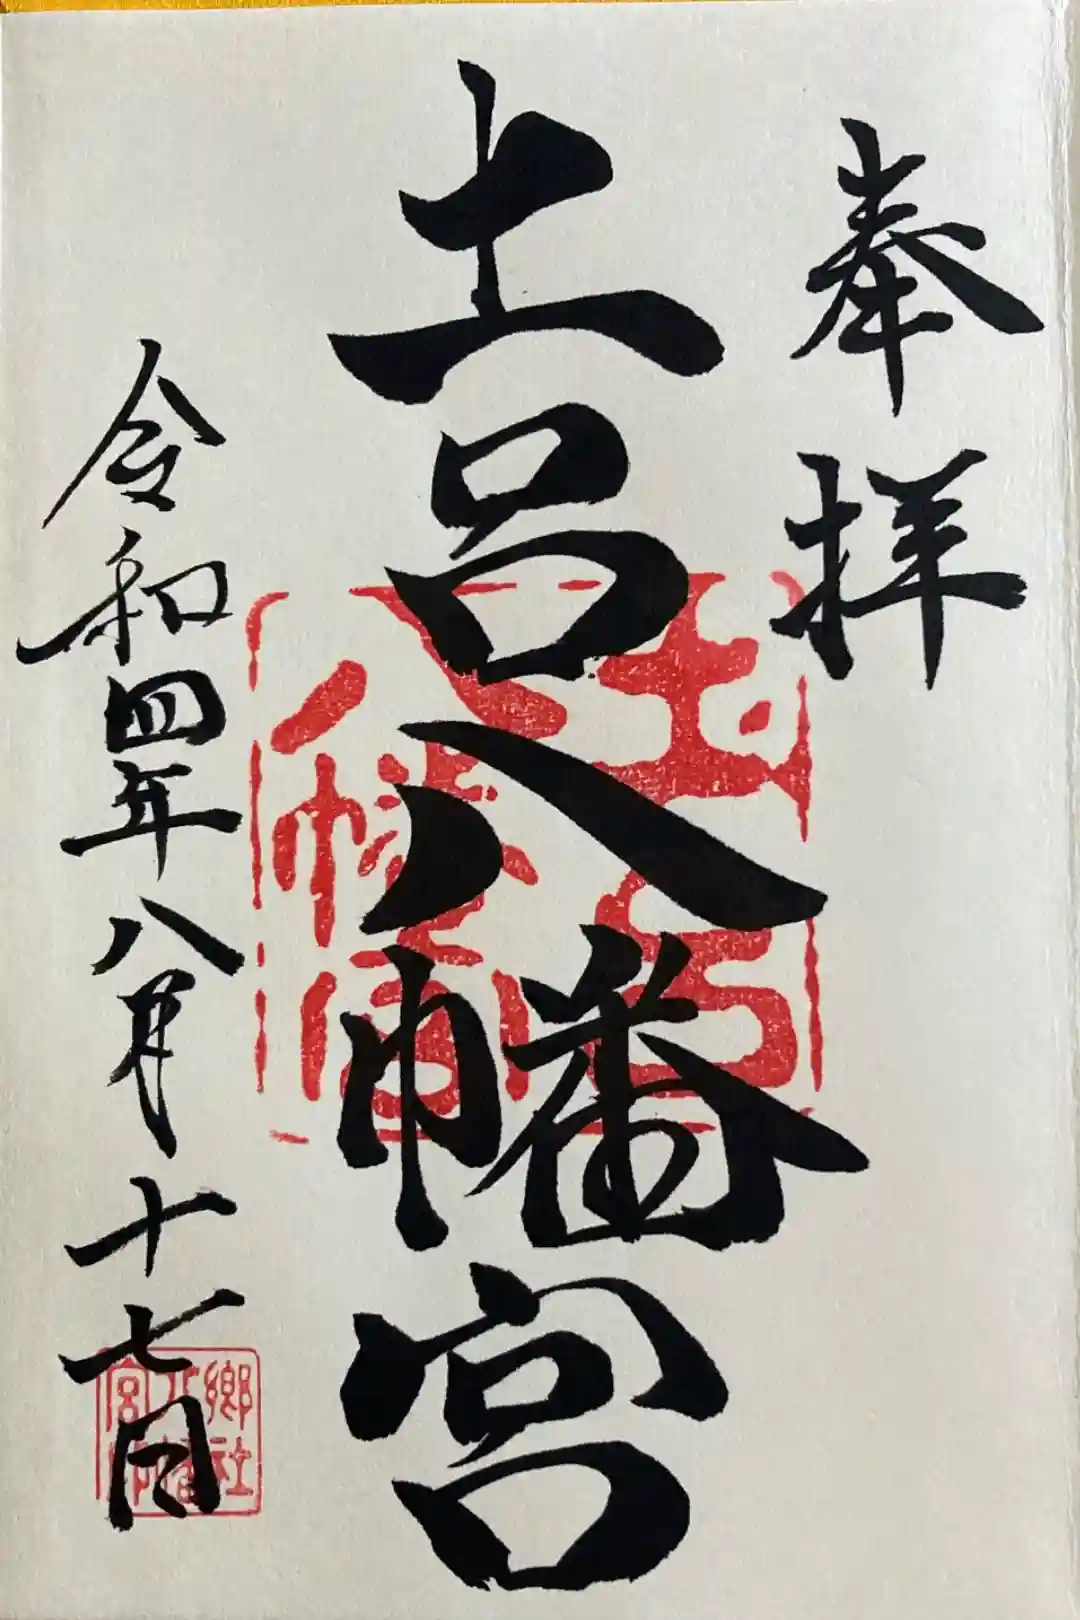 奉拝
土呂八幡宮
令和四年八月十七日
土呂
八幡宮
郷社
八幡
宮印